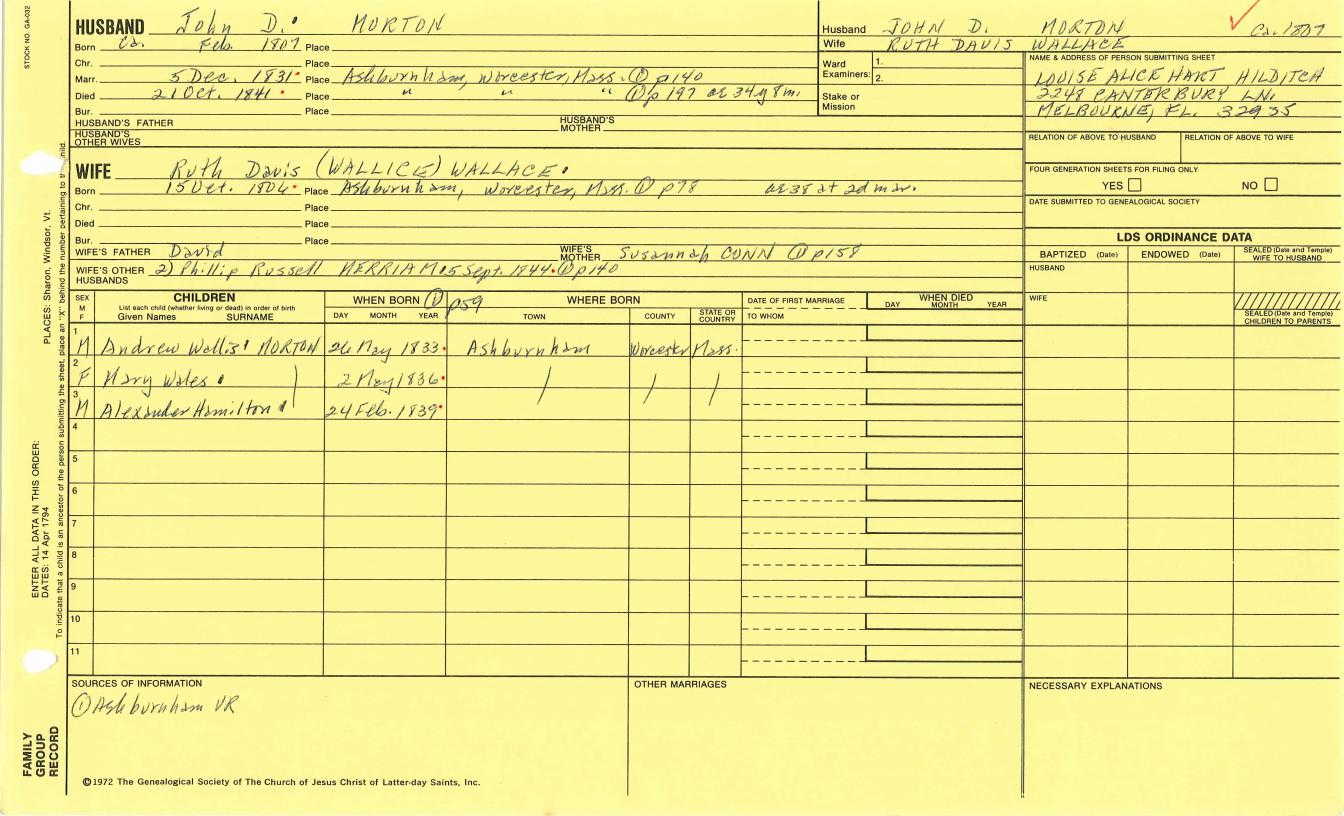 STOCK NO. GA-032
HUSBAND John D. MORTON
Born Ca. Feb. 1807 Place
Chr. Place
Marr. 5 Dec. 1831 Place Ashburnham, Worcester, Mass. ① p140
Died 21 Oct. 1841 Place " " " ① p 197 ae 34y 8m.
Bur. Place
HUSBAND'S FATHER HUSBAND'S MOTHER
HUSBAND'S OTHER WIVES
WIFE Ruth Davis (WALLICE) WALLACE
Born 15 Oct. 1806 Place Ashburnham, Worcester, Mass. ① p78 ae 38 at 2d mar.
Chr. Place
Died Place
Bur. Place
WIFE'S FATHER David WIFE'S MOTHER Susannah CONN ① p158
WIFE'S OTHER HUSBANDS 2) Phillip Russell MERRIAM 5 Sept. 1844 ① p140
Husband JOHN D. MORTON Ca. 1807
Wife RUTH DAVIS WALLACE
Ward Examiners: 1.
2.
Stake or Mission
NAME & ADDRESS OF PERSON SUBMITTING SHEET
LOUISE ALICE HART HILDITCH
2248 CANTERBURY LN.
MELBOURNE, FL. 32935
RELATION OF ABOVE TO HUSBAND RELATION OF ABOVE TO WIFE
FOUR GENERATION SHEETS FOR FILING ONLY
YES NO
DATE SUBMITTED TO GENEALOGICAL SOCIETY
LDS ORDINANCE DATA
BAPTIZED (Date) ENDOWED (Date) SEALED (Date and Temple) WIFE TO HUSBAND
HUSBAND
WIFE
SEALED (Date and Temple) CHILDREN TO PARENTS
SEX M F
CHILDREN
List each child (whether living or dead) in order of birth
Given Names SURNAME
WHEN BORN ① p59
DAY MONTH YEAR
WHERE BORN
TOWN COUNTY STATE OR COUNTRY
DATE OF FIRST MARRIAGE
TO WHOM
WHEN DIED
DAY MONTH YEAR
1 M Andrew Wallis MORTON 26 May 1833 Ashburnham Worcester Mass.
2 F Mary Wales 2 May 1836
3 M Alexander Hamilton 24 Feb. 1839
4
5
6
7
8
9
10
11
SOURCES OF INFORMATION
① Ashburnham VR
OTHER MARRIAGES
NECESSARY EXPLANATIONS
©1972 The Genealogical Society of The Church of Jesus Christ of Latter-day Saints, Inc.
FAMILY GROUP RECORD
ENTER ALL DATA IN THIS ORDER:
DATES: 14 Apr 1794
PLACES: Sharon, Windsor, Vt.
To indicate that a child is an ancestor of the person submitting the sheet, place an "X" behind the number pertaining to that child.